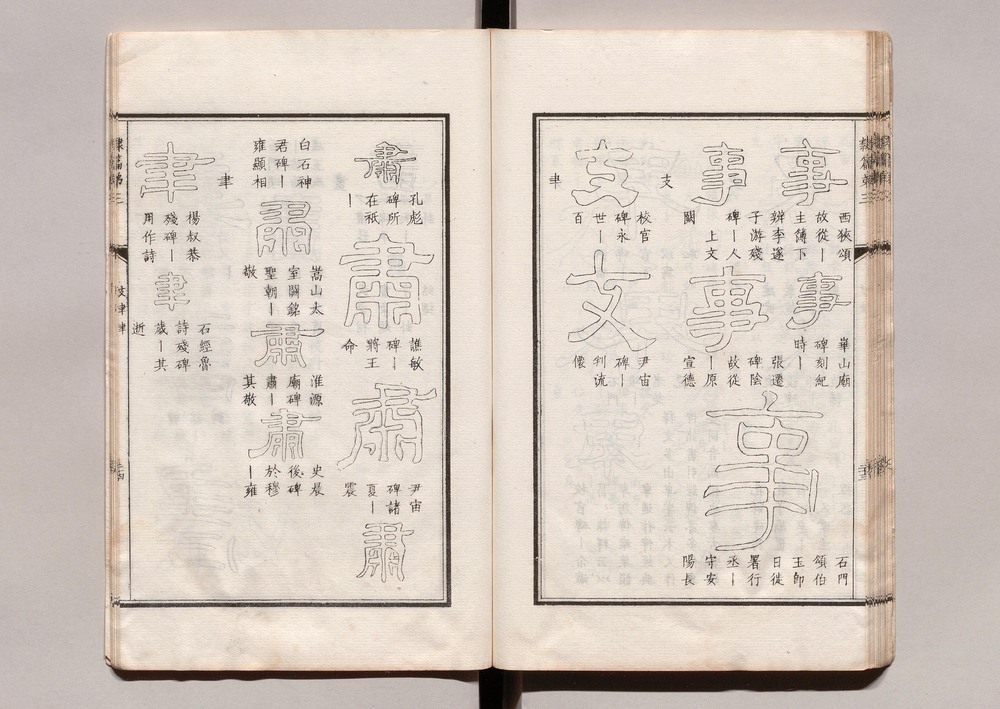 事
西狹頌
故從｜
主簿下
辨李遂
事
華山廟
碑刻紀
時｜
事
子游殘
碑｜人
上文
闕
事
張遷
碑陰
故從
｜原
宣德
事
石門
頌伯
玉即
日徙
署行
丞｜
守安
陽長
支
支
校官
碑永
世｜
百
支
尹宙
碑｜
判流
僊
聿
肅
孔彪
碑所
在祇
｜
肅
譙敏
碑｜
將王
命
肅
尹宙
碑諸
夏｜
震
肅
白石神
君碑｜
雍顯相
肅
嵩山太
室闕銘
聖朝｜
敬
肅
淮源
廟碑
肅｜
其敬
肅
史晨
後碑
於穆
｜雍
聿
聿
楊叔恭
殘碑｜
用作詩
聿
石經魯
詩殘碑
歲｜其
逝
隸篇第三
支聿聿